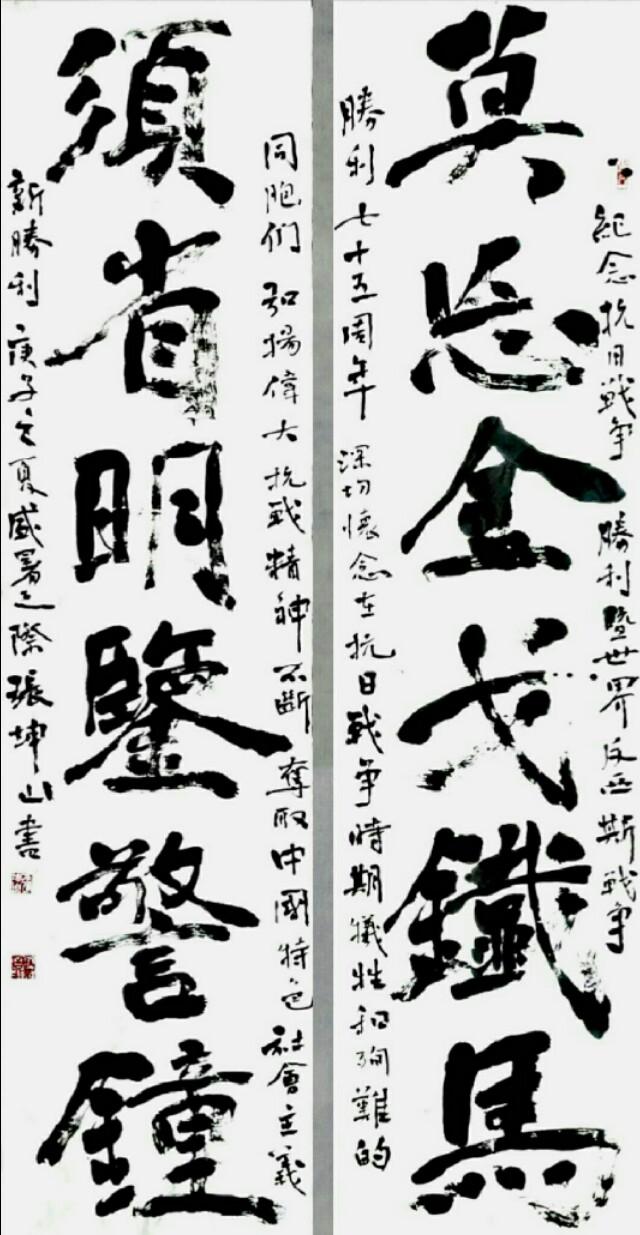 紀念抗日戰争勝利暨世界反西斯戰争
莫忘金戈鐵馬
勝利七十五周年深切懷念在抗日戰争時期犧牲和殉難的
同胞们弘揚偉大抗戰精神不斷奪取中國特色社會主義
須省明鑒警鐘
新勝利庚子之夏盛暑之際張坤山書